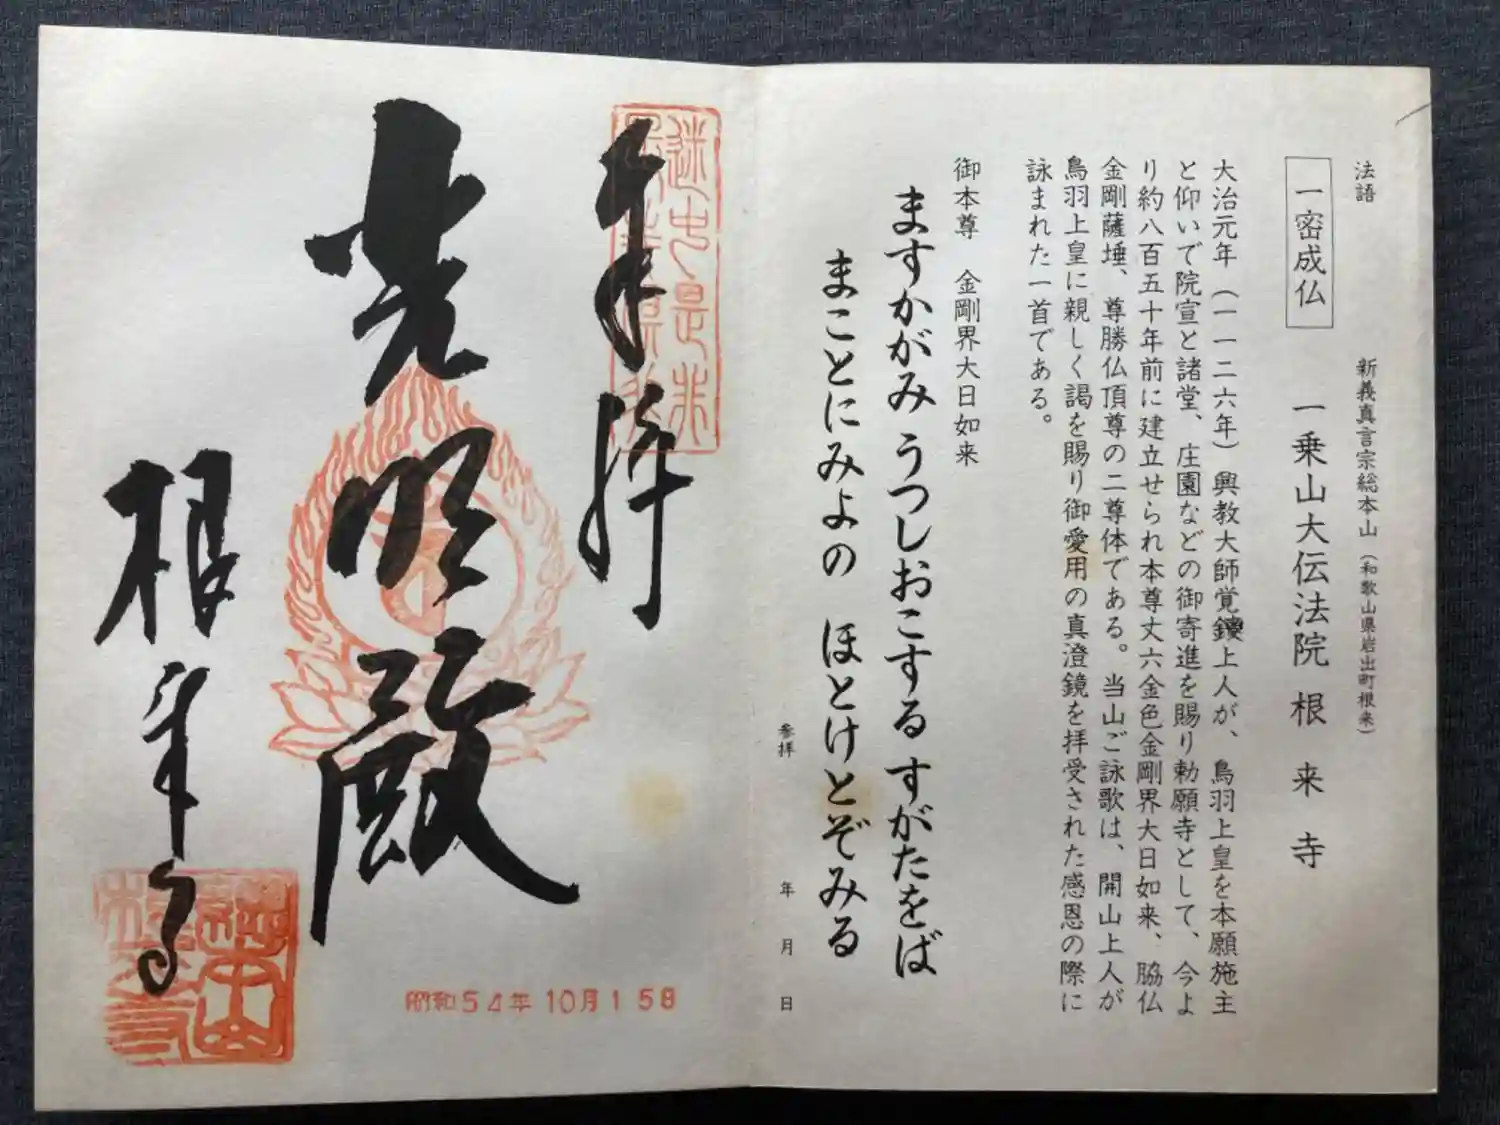 法語
新義真言宗総本山（和歌山県岩出町根来）
一密成仏
一乗山大伝法院 根来寺
大治元年（一一二六年）興教大師覚鑁上人が、鳥羽上皇を本願施主
と仰いで院宣と諸堂、庄園などの御寄進を賜り勅願寺として、今よ
り約八百五十年前に建立せられ本尊丈六金色金剛界大日如来、脇仏
金剛薩埵、尊勝仏頂尊の二尊体である。当山ご詠歌は、開山上人が
鳥羽上皇に親しく謁を賜り御愛用の真澄鏡を拝受された感恩の際に
詠まれた一首である。
御本尊 金剛界大日如来
ますかがみ うつしおこする すがたをば
まことにみよの ほとけとぞみる
参拝 年 月 日
奉拝
光明殿
根来寺
昭和54年10月15日